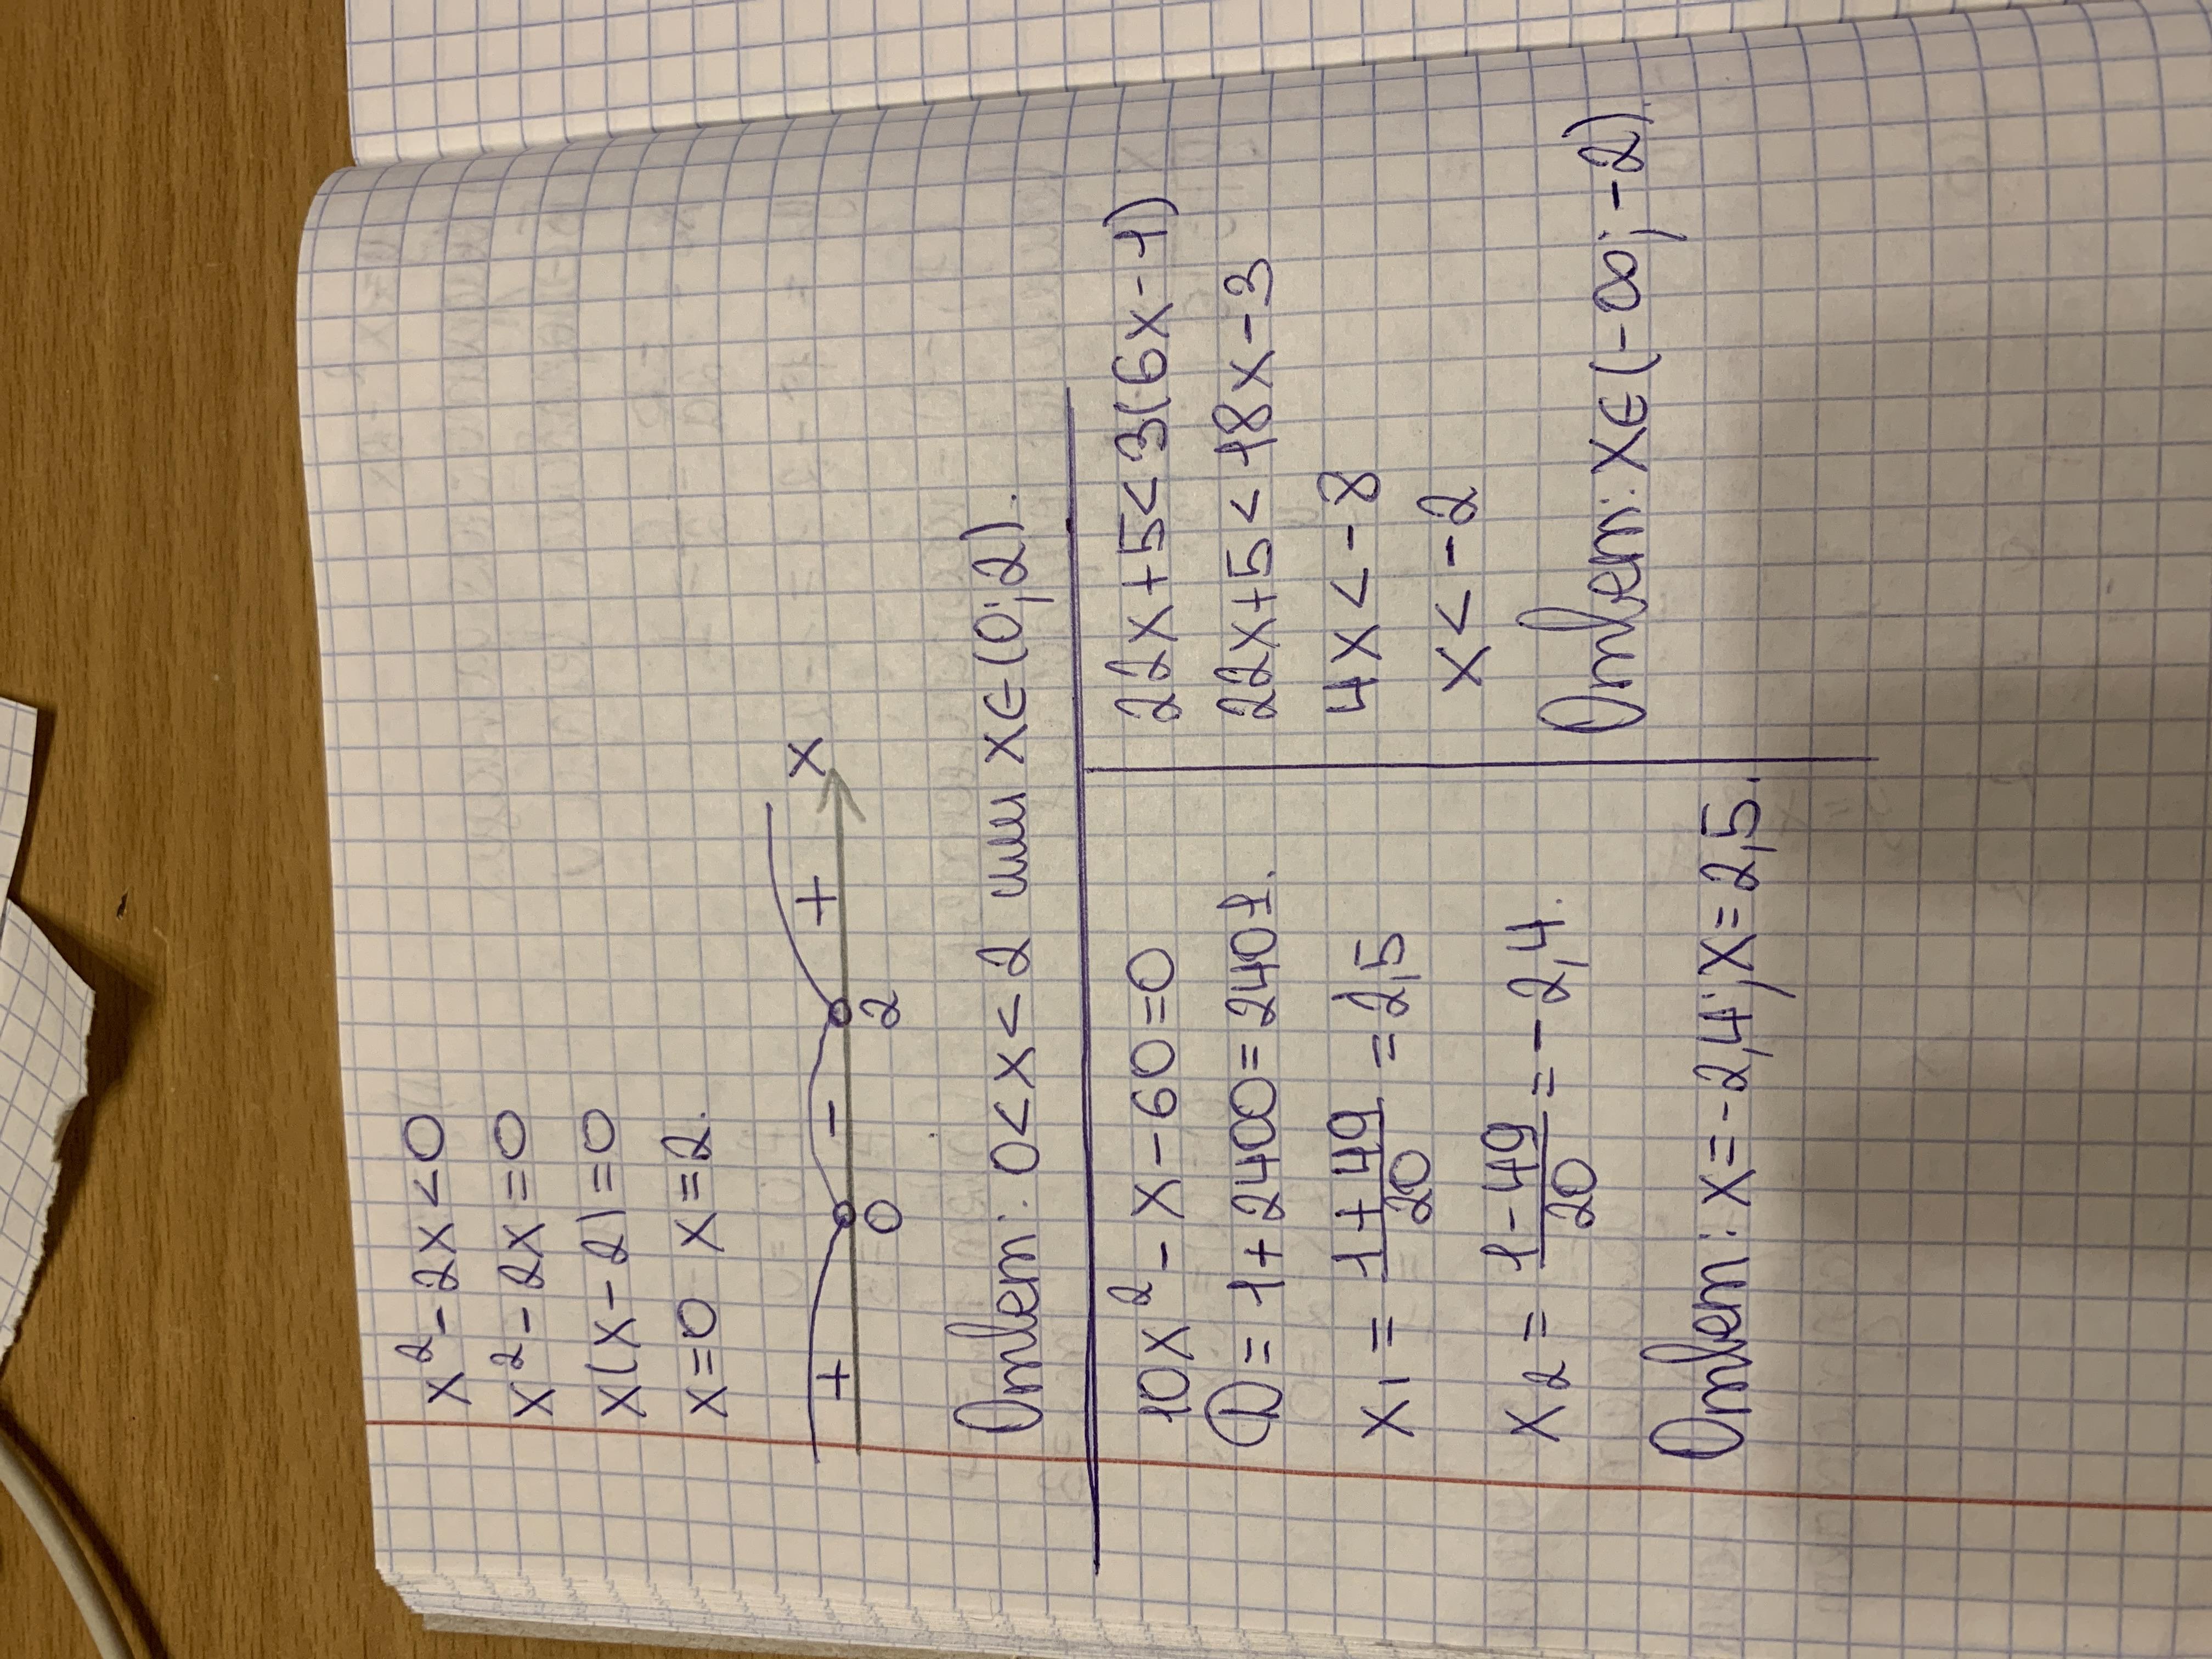 x² - 2x < 0
x² - 2x = 0
x(x - 2) = 0
x = 0 x = 2.
+ - + x
0 2
Ответ: 0 < x < 2 или x ∈ (0; 2).
10x² - x - 60 = 0
D = 1 + 2400 = 2401.
x₁ = (1 + 49)/20 = 2,5
x₂ = (1 - 49)/20 = -2,4.
Ответ: x = -2,4; x = 2,5.
22x + 5 < 3(6x - 1)
22x + 5 < 18x - 3
4x < -8
x < -2
Ответ: x ∈ (-∞; -2)